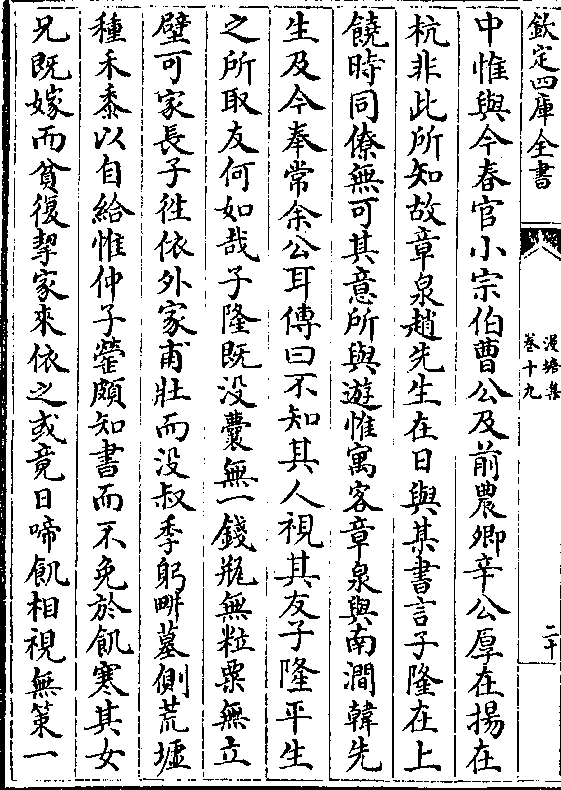 欽定四庫全書
漫塘集
卷十九
二十
中惟與今春官小宗伯曹公及前農卿辛公厚在揚在
杭非此所知故章泉趙先生在日與某書言子隆在上
饒時同僚無可其意所與遊惟寓客章泉與南澗韓先
生及今奉常余公耳傳曰不知其人視其友子隆平生
之所取友何如哉子隆既没囊無一錢瓶無粒粟無立
壁可家長子徃依外家甫壯而没叔季躬畊墓側荒墟
種禾黍以自給惟仲子蓥頗知書而不免於飢寒其女
兄既嫁而貧復挈家來依之或竟日啼飢相視無策一